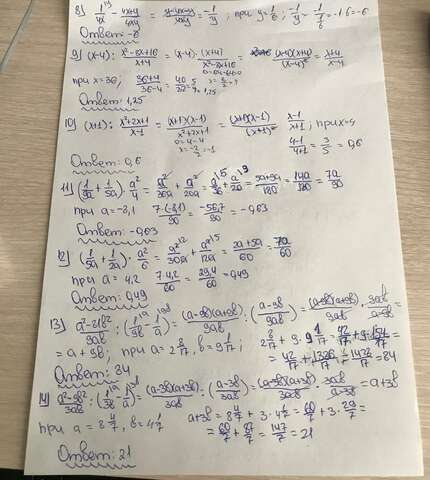 8) 1/4x^(y - 4x+y/4xy = y-4x-y/4xy = -1/y ; при y=1/6 ; -1/y = -1/(1/6) = -1·6 = -6
Ответ: -6
9) (x-4) : x²-8x+16/x+4 = (x-4)·(x+4)/x²-8x+16 = (x-4)(x+4)/(x-4)² = x+4/x-4
при x=36; 36+4/36-4 = 40/32 = 5/4 = 1,25
Ответ: 1,25
10) (x+1) : x²+2x+1/x-1 = (x+1)(x-1)/x²+2x+1 = (x+1)(x-1)/(x+1)² = x-1/x+1 ; при x=4
D=4-4
x=-2/2=-1
4-1/4+1 = 3/5 = 0,6
Ответ: 0,6
11) (1/9a + 1/5a) · a²/4 = a²/36a + a²/20a = a/36 + a/20 = 5a+9a/180 = 14a/180 = 7a/90
при a=-8,1 7·(-8,1)/90 = -56,7/90 = -0,63
Ответ: -0,63
12) (1/5a + 1/2a) · a²/6 = a²/30a + a²/12a = 2a+5a/60 = 7a/60
при a = 4,2 7·4,2/60 = 29,4/60 = 0,49
Ответ: 0,49
13) a²-81b²/9ab : (1/9b - 1/a) = (a-9b)(a+9b)/9ab : (a-9b/9ab) = (a-9b)(a+9b)/9ab · 9ab/a-9b =
= a + 9b ; при a=2 8/17, b=9 1/17 ; 2 8/17 + 9·9 1/17 = 42/17 + 9·154/17 =
= 42/17 + 1386/17 = 1428/17 = 84
Ответ: 84
14) a²-9b²/3ab : (1/3b - 1/a) = (a-3b)(a+3b)/3ab : (a-3b/3ab) = (a-3b)(a+3b)/3ab · 3ab/a-3b = a+3b
при a = 8 4/7, b = 4 1/7 a+3b = 8 4/7 + 3·4 1/7 = 60/7 + 3·29/7 =
= 60/7 + 87/7 = 147/7 = 21
Ответ: 21